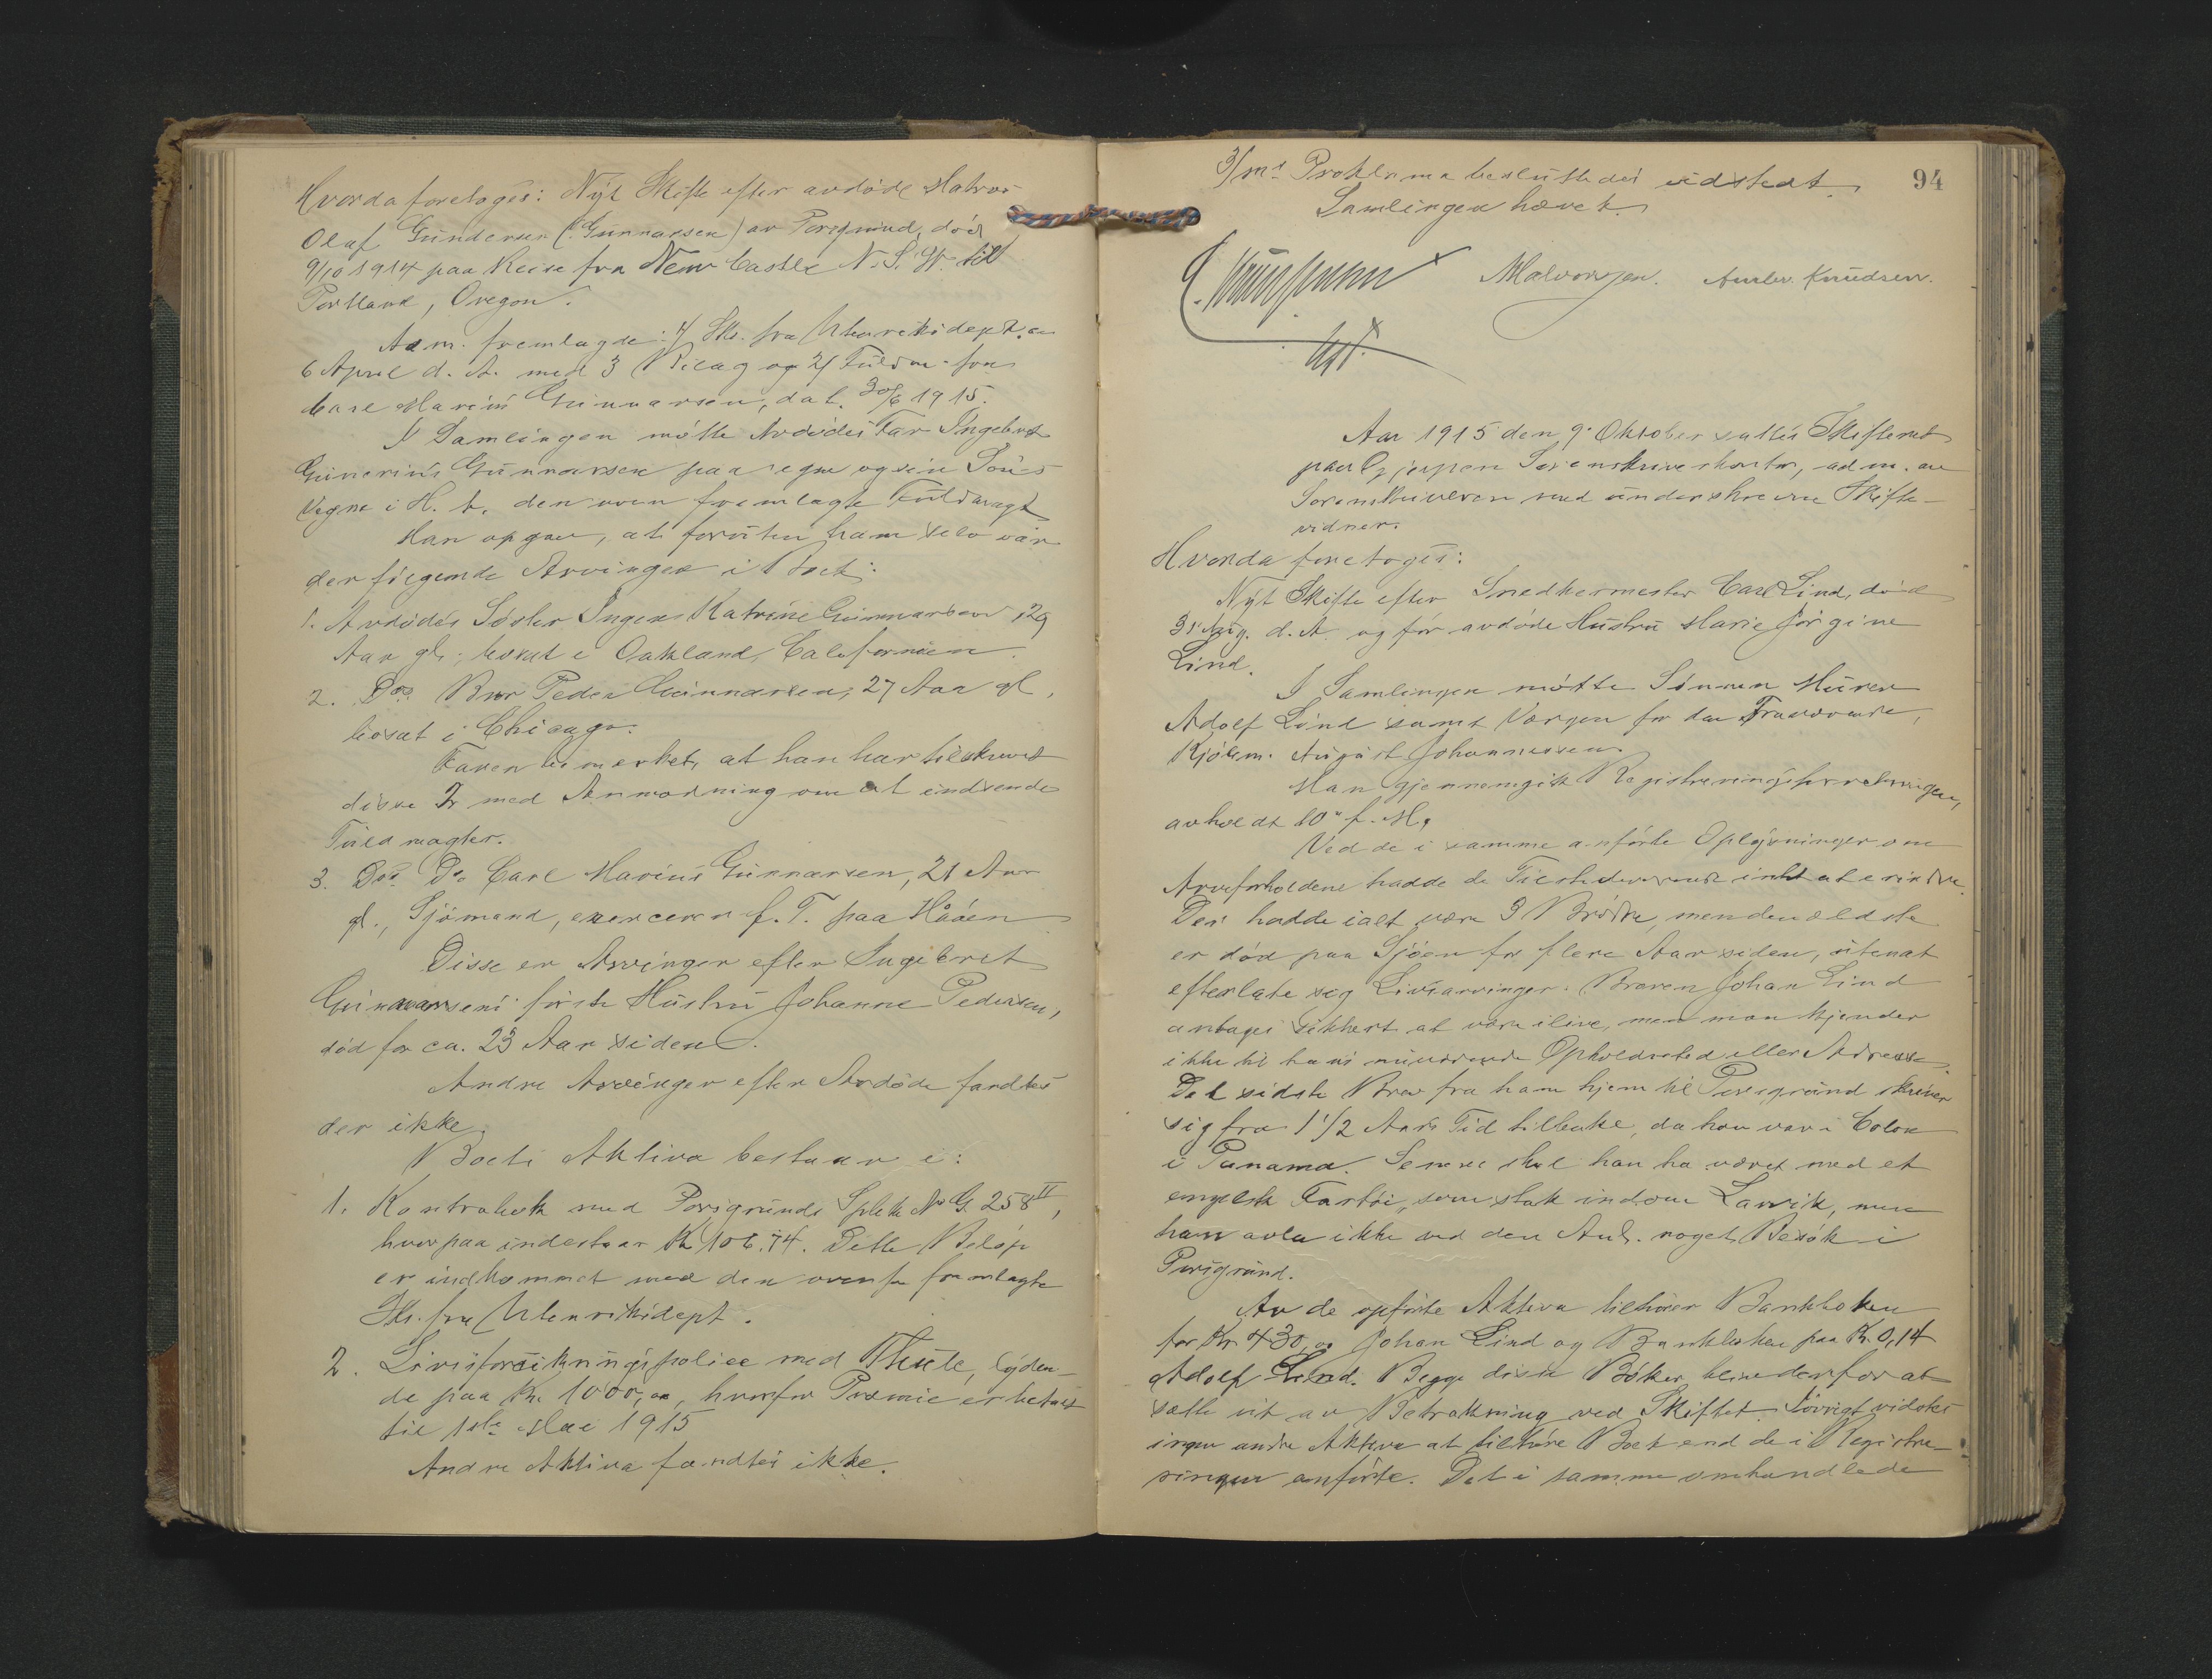 Hvorda foretoges: Nyt Skifte efter avdöde Matros
Olaf Gundersen (: Gunnarsen) av Porsgrund, död
9/10 1914 paa Reise fra New Castle N. S. W. till
Portland, Oregon.
Adm. fremlagde: 1/ Skr. fra Utenriksdept. av
6 April d. A. med 3 Bilag og 2/ Fuldm. fra
Carl Marius Gunnarsen, dat. 30/6 1915.
I Samlingen mötte Avdödes Far Ingebret
Gunerius Gunnarsen paa egne og sin Söns
Vegne i H. t. den oven fremlagte Fuldmagt
Han opgav, at foruten ham selv var
der fölgende Arvinger i Boet:
1. Avdödes Söster Inger Katrine Gunnarsen, 29
Aar gl., bosat i Oakland, Californien.
2. Do. Bror Peder Gunnarsen, 27 Aar gl,
bosat i Chicago.
Faren bemerket, at han har tilskrevet
disse 2 med Anmodning om at indsende
Fuldmagter.
3. Dos Do Carl Marius Gunnarsen, 21 Aar
gl., Sjömand, exercerer f. T. paa Håöen
Disse er Arvinger efter Ingebret
Gunnarsens förste Hustru Johanne Pedersen,
död for ca. 23 Aar siden.
Andre Arvinger efter Avdöde fandtes
der ikke.
Boets Aktiva bestaar i:
1. Kontrabok med Porsgrunds Spbk No G. 258 II,
hvorpaa indestaar Kr 106.74. Dette Belöp
er indkommet med den ovenfor fremlagte
Skr. fra Utenriksdept.
2. Livsforsikringspolice med Thule, lyden-
de paa Kr. 1000,00, hvorfor Præmie er betalt
til 1ste Mai 1915
Andre Aktiva fandtes ikke.
94
3/mds Proklama besluttedes udstedt.
Samlingen hævet.
Malvorsen. Amler Knudsen.
Aar 1915 den 9. Oktober sattes Skifteret
paa Gjerpen Sörenskriverkontor, adm. av
Sorenskriveren med underskrevne Skifte-
vidner.
Hvorda foretoges:
Nyt Skifte efter Snedkermester Carl Lind, död
31 Aug. d. A. og för avdöde Hustru Marie Jörgine
Lind.
I Samlingen mötte Sönnen Murer
Adolf Lind samt Værgen for den Fraværende,
Kjöbm. August Johannessen.
Man gjennemgik Registreringsforretningen,
avholdt 10de f. M.
Ved de i samme anförte Oplysninger om
Arveforholdene hadde de Tilstedeværende intet at erindre.
Der hadde ialt være 3 Brödre, men den ældste
er död paa Sjöen for flere Aar siden, uten at
efterlate sig Livsarvinger. Broren Johan Lind
antages sikkert at være ilive, men man kjender
ikke til hans nuværende Opholdssted eller Adresse.
Det sidste Brev fra ham hjem til Porsgrund skriver
sig fra 1 1/2 Aars Tid tilbake, da han var i Colon
i Panama. Senere skal han ha været med et
engelsk Fartöi, som stak indom Larvik, men
han avla ikke ved den Anl. noget Besök i
Porsgrund.
Av de opförte Aktiva tilhörer Bankboken
for Kr. 430,00 Johan Lind og Bankboken paa Kr. 0,14
Adolf Lind. Begge disse Böker blir derfor at
sætte ut av Betraktning ved Skiftet. Iövrigt vidstes
ingen andre Aktiva at tilhöre Boet end de i Registre-
ringen anförte. Det i samme omhandlede